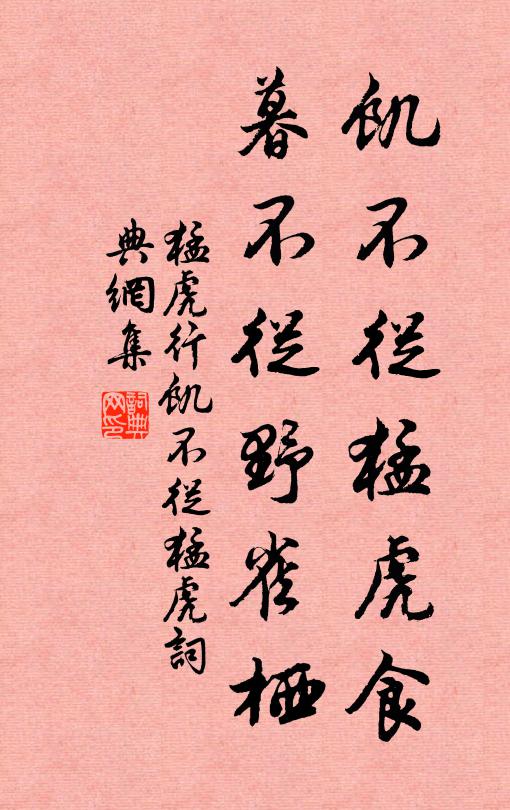 飢不從猛虎食
暮不從野雀棲
猛虎行飢不從猛虎詞
典網集
詞典
网印